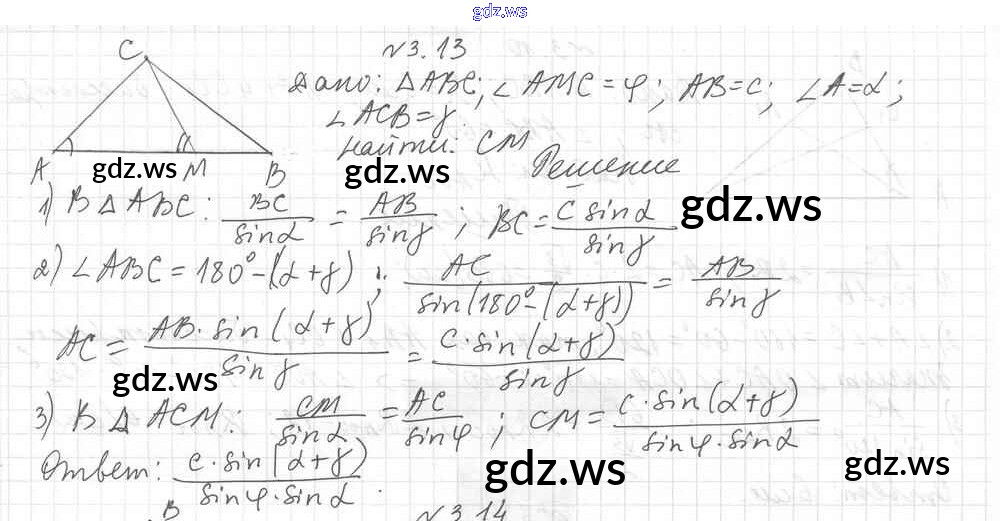 gdz.ws
№3.13
C
Дано: △ABC; ∠AMC = φ; AB = c; ∠A = α;
∠ACB = γ
Найти: CM
A gdz.ws M B gdz.ws Решение
1) В △ABC: BC/sin α = AB/sin γ; BC = c sin α/sin γ gdz.ws
2) ∠ABC = 180° - (α + γ); AC/sin(180° - (α + γ)) = AB/sin γ
AC = AB · sin(α + γ)/sin γ = c · sin(α + γ)/sin γ
gdz.ws
3) В △ACM: CM/sin α = AC/sin φ; CM = c · sin(α + γ)/sin φ · sin α
Ответ: c · sin(α + γ)/sin φ · sin α. gdz.ws gdz.ws
B №3.14